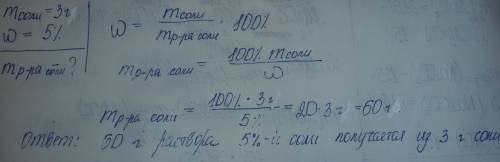 m соли = 3 г
w = 5%
m р-ра соли?
w = m соли / m р-ра соли · 100%
m р-ра соли = 100% · m соли / w
m р-ра соли = 100% · 3 г / 5% = 20 · 3 г = 60 г
Ответ: 60 г раствора 5%-й соли получается из 3 г соли